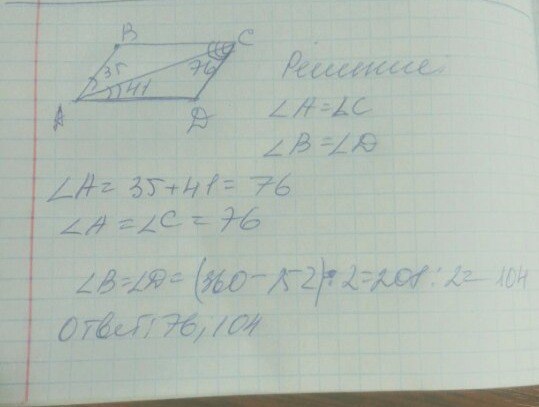 B
C
35
76
41
A
D
Решение:
∠A=∠C
∠B=∠D
∠A= 35+41= 76
∠A=∠C=76
∠B=∠D=(360-152):2=208:2=104
Ответ: 76, 104